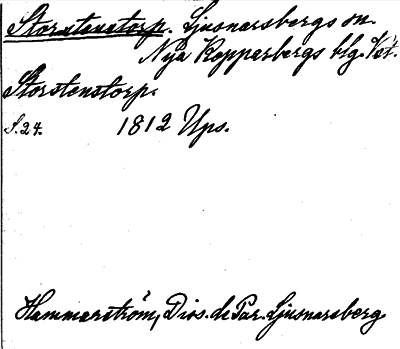 Storstenstorp. Ljusnarsbergs sn.
Nya Kopparbergs blg. Vst.
Storstenstorp.
S. 24. 1812 Ups.
Hammarström, Diss. de Par. Ljusnarsberg